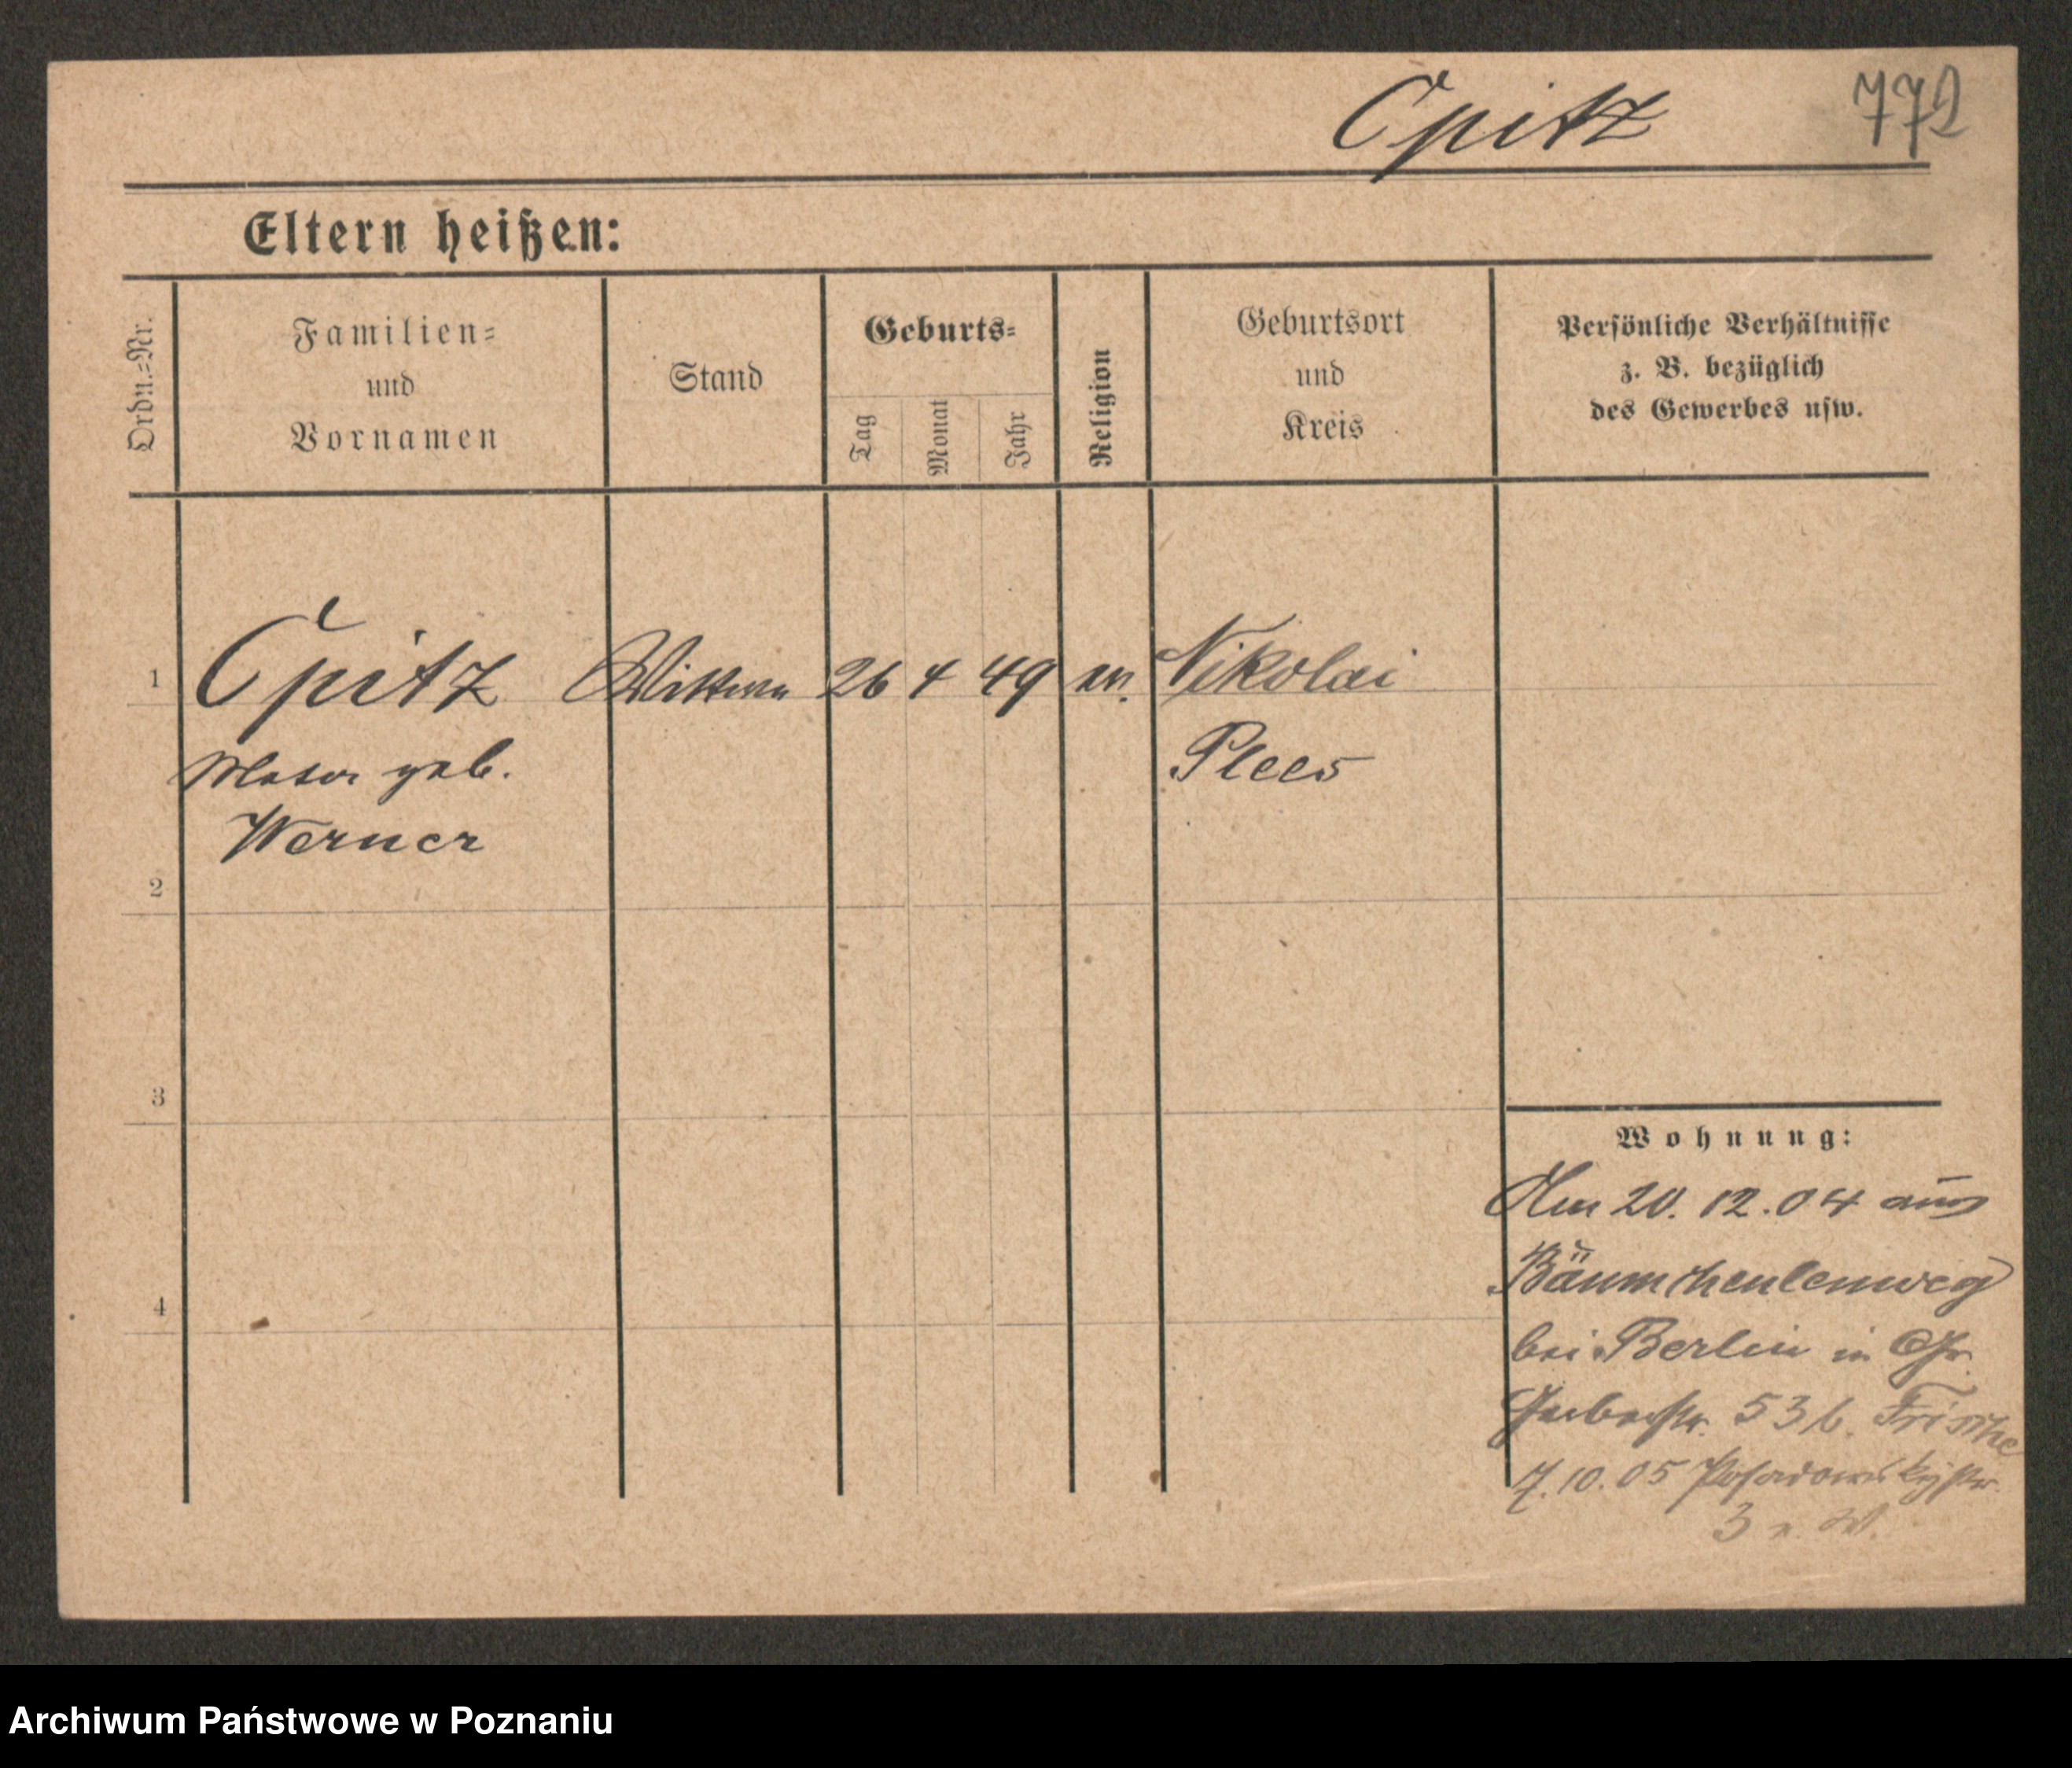 Opitz 772
Eltern heißen:
Ordn.=Nr.
Familien=
und
Vornamen
Stand
Geburts=
Tag
Monat
Jahr
Religion
Geburtsort
und
Kreis
Persönliche Verhältnisse
z. B. bezüglich
des Gewerbes usw.
1 Opitz Wittwe 26 4 49 ev. Nikolai
geb. Pless
Werner
2
3
4
Wohnung:
Am 20. 12. 04 aus
Bäumchenlenweg
bei Berlin in Gr.
Gerberstr. 53 b. Frische
7. 10. 05 Posadowskystr.
3 n. W.
Archiwum Państwowe w Poznaniu